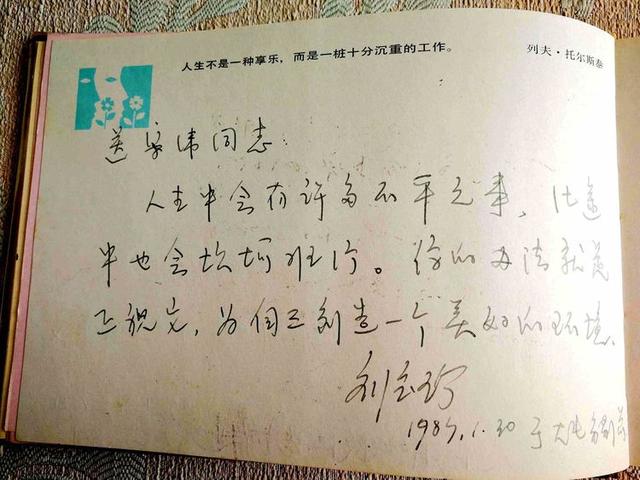 人生不是一种享乐，而是一桩十分沉重的工作。
列夫·托尔斯泰
送宗伟同志：
人生中会有许多不平之事，仕途
中也会坎坷难行。你的办法就是
正视它，为自己创造一个美好的环境。
刘
1987.1.30 于大屯